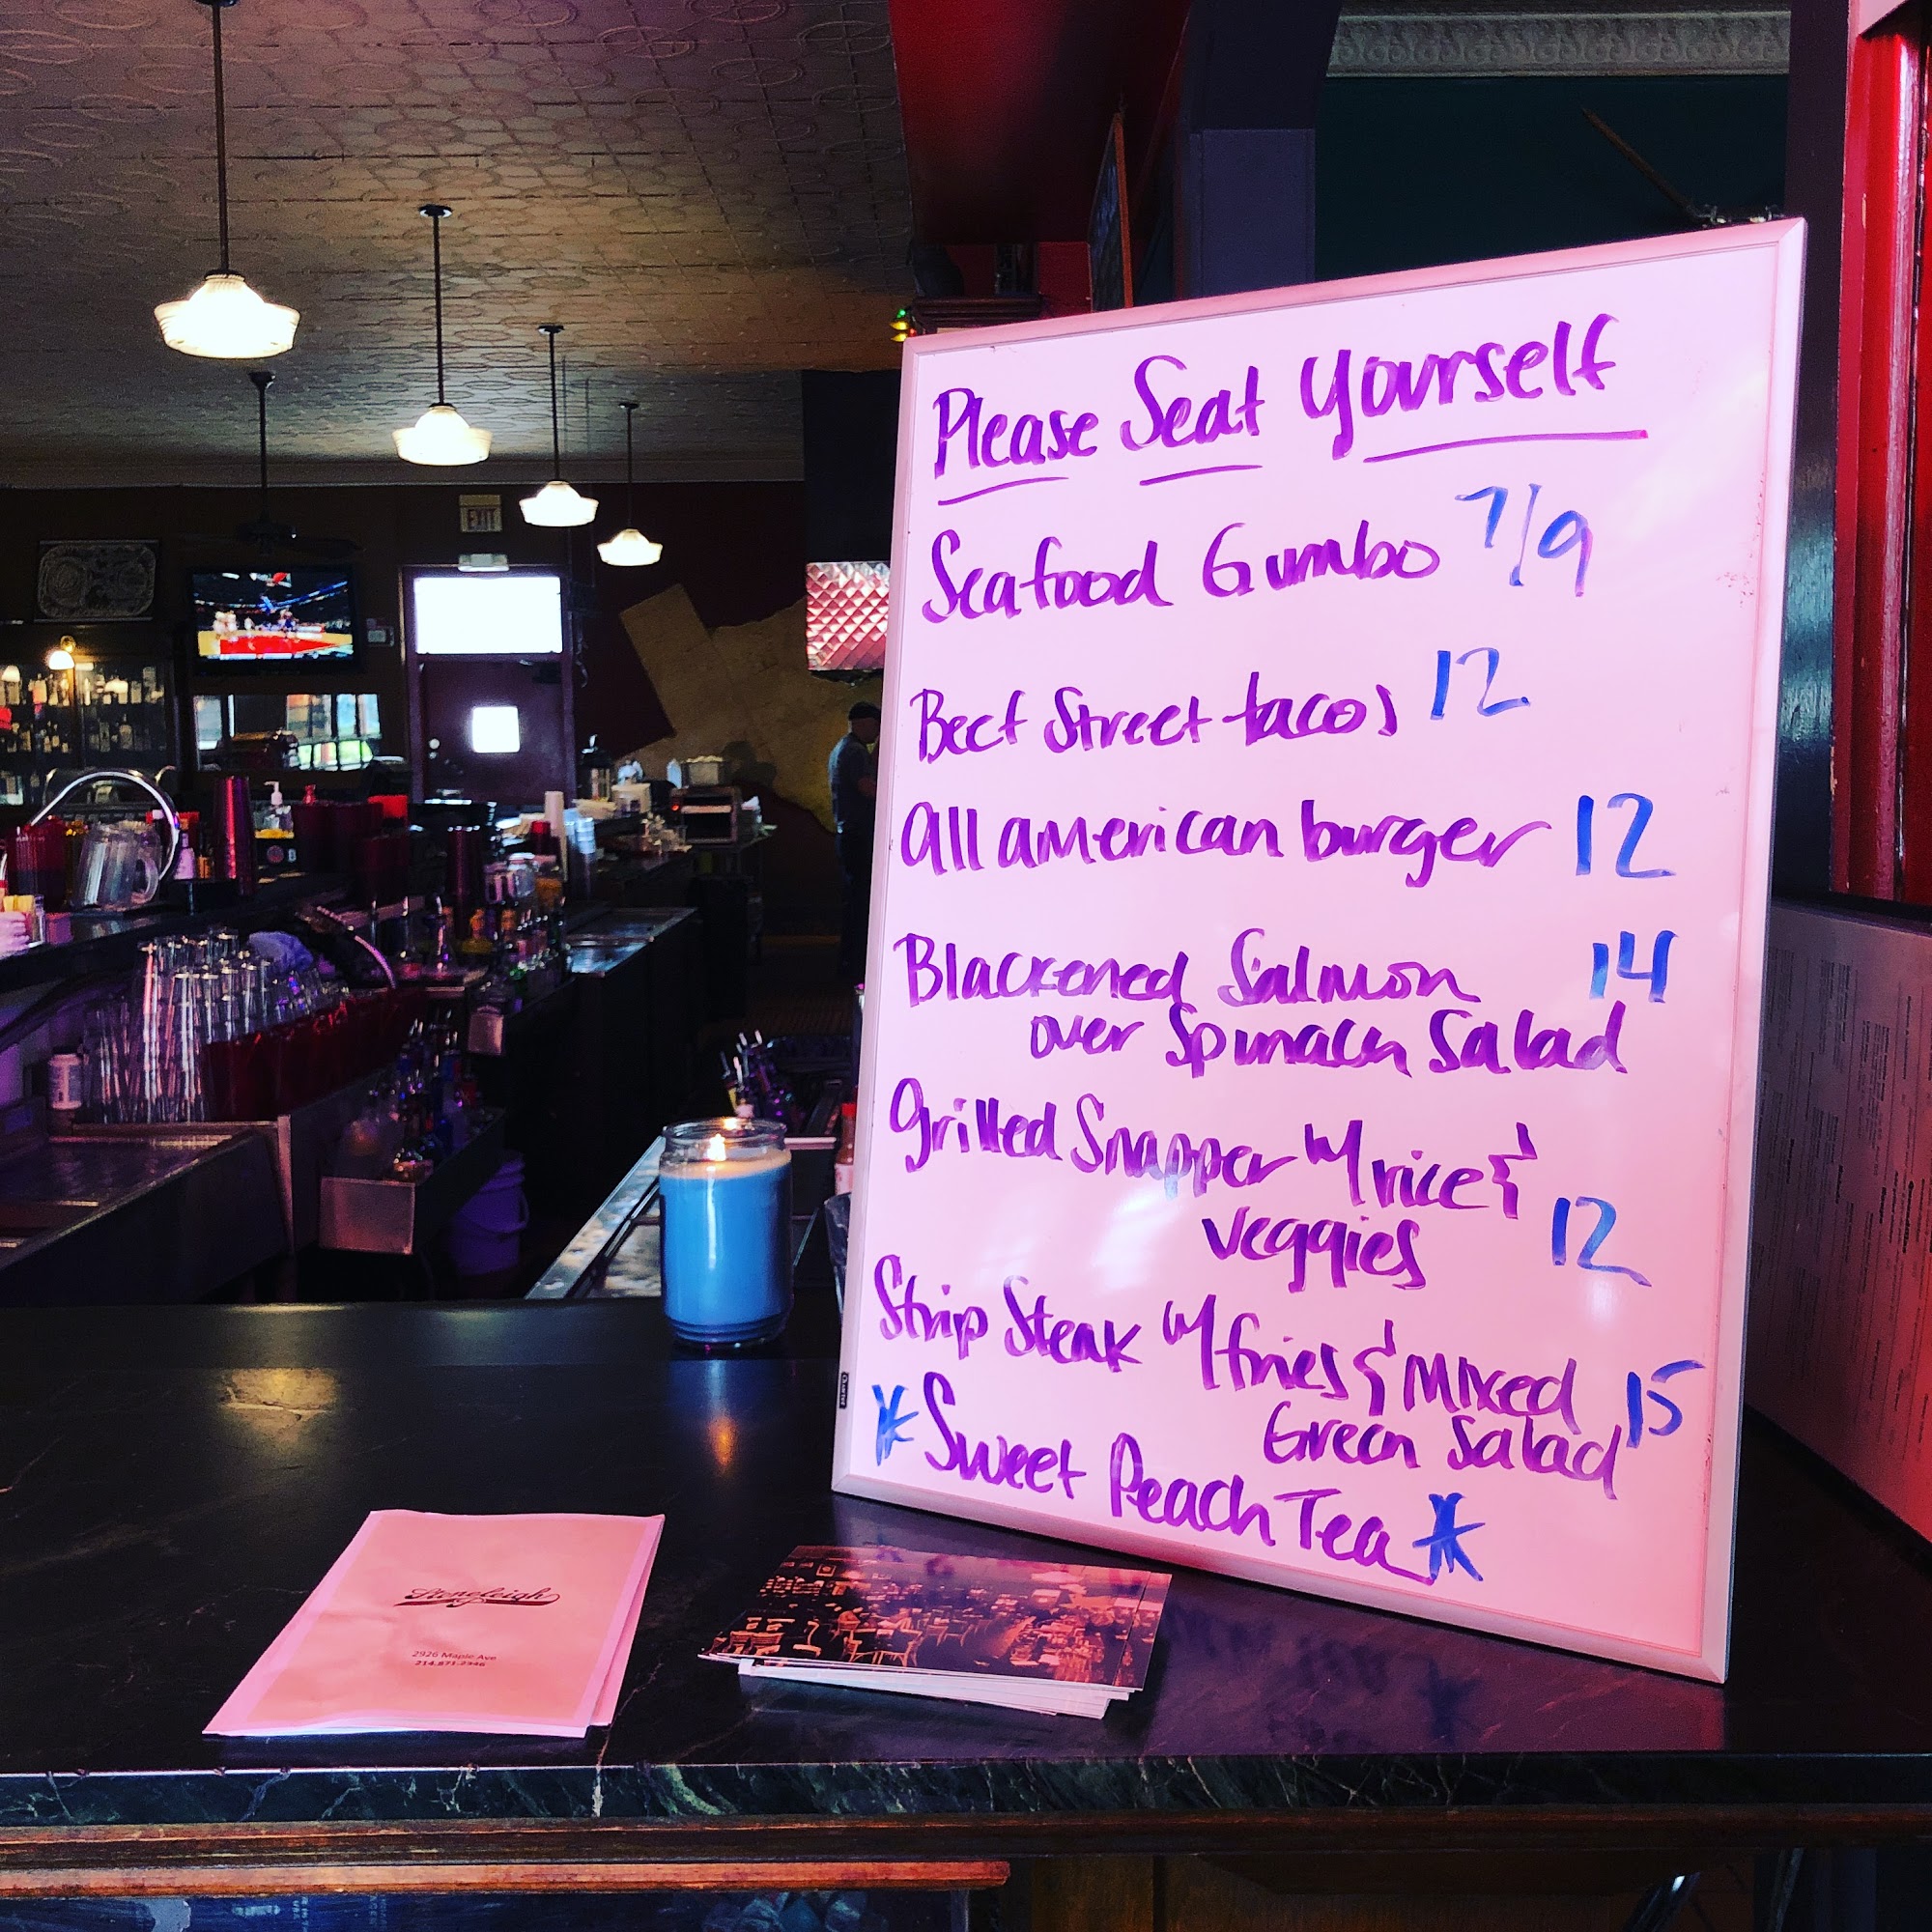 EXIT
Please Seat Yourself
Seafood Gumbo 7/9
Beef Street tacos 12
all american burger 12
Blackened Salmon 14
over Spinach Salad
grilled Snapper w/ rice &
veggies 12
Strip Steak w/ fries & Mixed 15
Green Salad
* Sweet Peach Tea *
Stoneleigh
2926 Maple Ave
214.871.2346